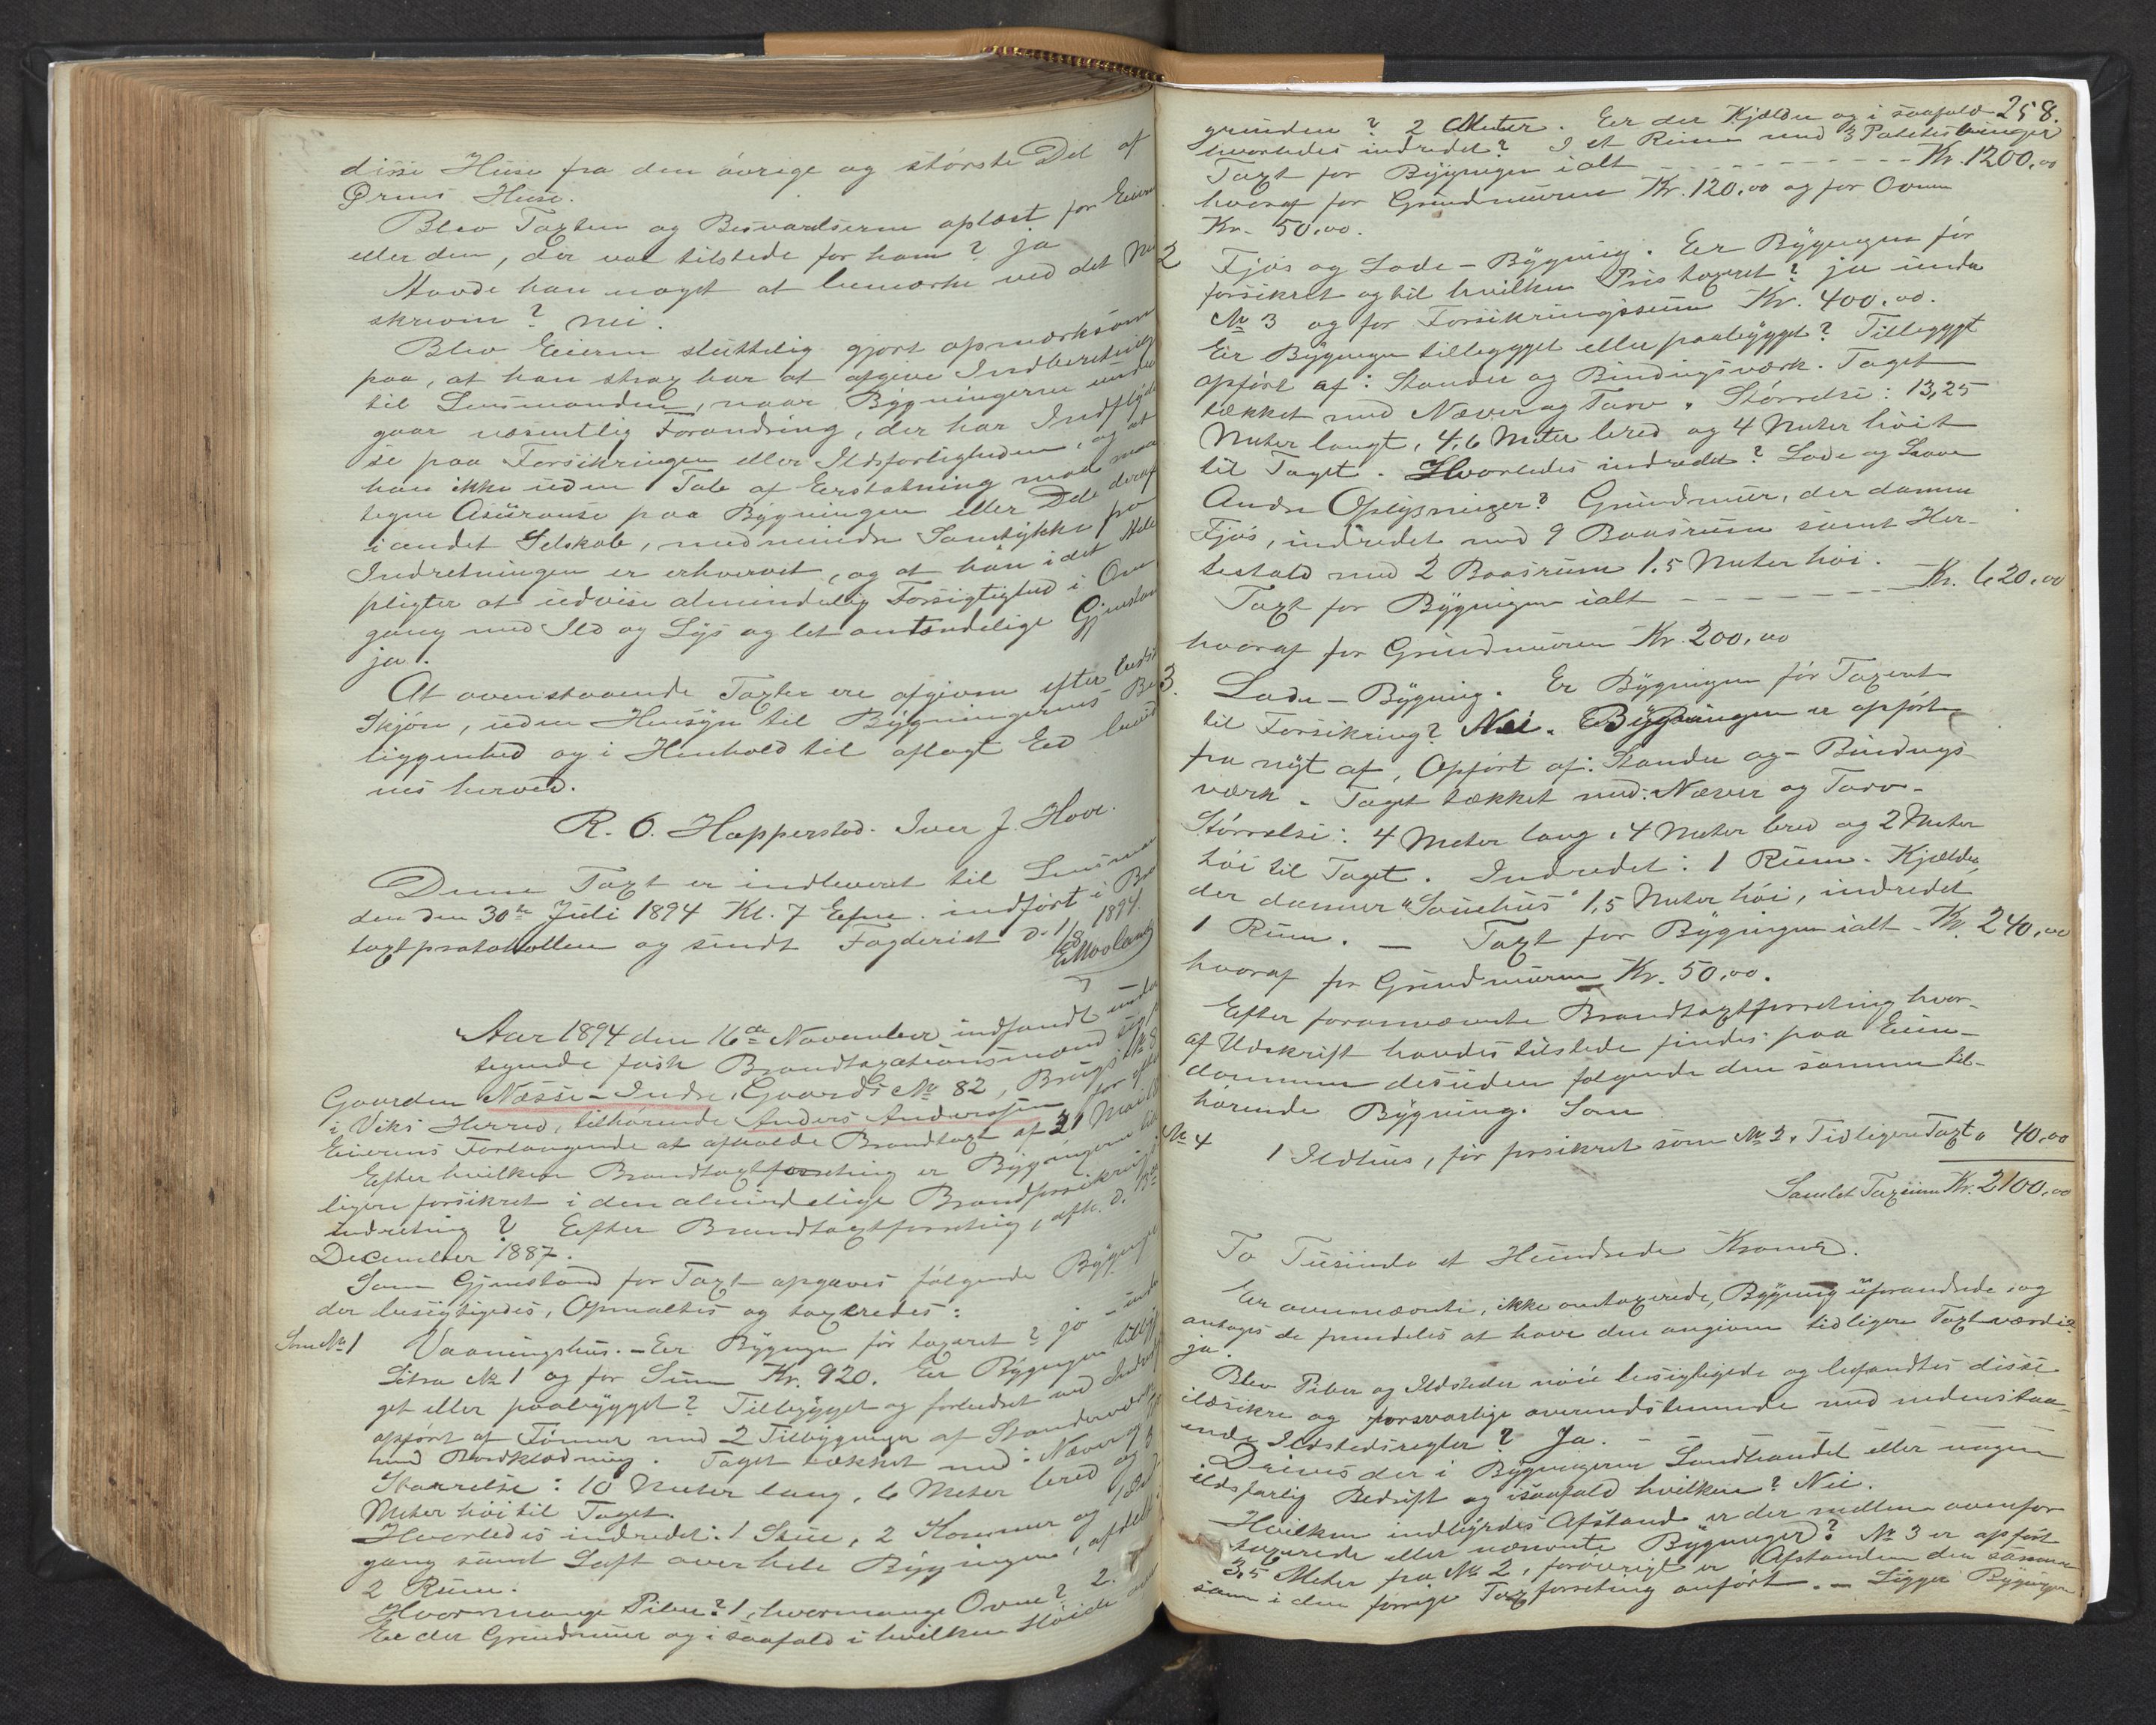 disse Huse fra den övrige og störste Del af
Ørens Huse.
Blev Taxten og Besvarelserne oplæst for Eieren
eller den, der var tilstede for ham? ja
Havde han noget at bemærke ved det
skrevne? nei.
Blev Eieren sluttelig gjort opmærksom
paa, at han strax har at afgive Indberetning
til Lensmanden, naar Bygningerne under
gaar væsentlig Forandring, der har Indflydel
se paa Forsikringen eller Ildsfarligheden, og at
han ikke uden Tab af Erstatning maa
tegne Asuranse paa Bygningen eller Dele deraf
i andet Selskab, medmindre Samtykke fra
Indretningen er erhvervet, og at han i det Hele
pligter at udvise almindelig Forsigtighed i Om
gang med Ild og Lys og let antændelige Gjenstan
ja.
At ovenstaaende Taxter ere afgivne efter bedste
Skjön, uden Hensyn til Bygningernes Be
liggenhed og i Henhold til aflagt Eed bevid
nes herved.
R. O. Hopperstad. Iver J. Hove.
Denne Taxt er indleveret til Lensman
den den 30te Juli 1894 Kl. 7 Efm. indfört i Bran
taxtprotokollen og sendt Fogderiet d. 1/8 1894.
Aar 1894 den 16de November indfandt under
tegnede faste Brandtaxationsmænd sig p
Gaarden Næsse-Indre, Gaards No 82, Brugs No 8
i Viks Herred, tilhörende Anders Anderssen for efter
Eierens Forlangende at afholde Brandtaxt af 21 Mai
Efter hvilken Brandtaxtforretning er Bygningerne tid
ligere forsikret i den almindelige Brandforsikrings
indretning? Efter Brandtaxtforretning, afh. d. 15de
December 1887.
Som Gjenstand for Taxt opgaves fölgende Bygninger
der besigtigedes, Opmaaltes og taxeredes:
No 1 Vaaningshus. – Er Bygngen för taxeret? ja – under
Litra No 1 og for Sum Kr. 920. Er Bygngen tilbyg
get eller paabygget? Tilbygget og forbedret ved
opfört af Tömmer med 2 Tilbygninger af Standerværk
med Bordklædning. Taget tækket med: Næver og
Størrelse: 10 Meter lang, 6 Meter bred og 3
Meter höi til Taget.
Hvorledes indredet: 1 Stue, 2 Kammer og
gang samt Loft over hele Bygningen, afdelt i
2 Rum.
Hvormange Piber? 1, hvormange Ovne? 2.
Er der Grundmur og i saafald i hvilken Höide over
258.
grunden? 2 Meter. Er der Kjælder og i saafald
hvorledes indredet? I et Rum med 3 Potetesbinger
Taxt for Bygningen ialt – – – – – – – Kr. 1200,00
hvoraf for Grundmuren Kr. 120,00 og for Ovnene
Kr. 50,00.
2 Fjøs og Lade-Bygning. Er Bygningen för
forsikret og til hvilken Pris taxeret? ja under
No 3 og for Forsikringssum Kr. 400,00.
Er Bygningen tilbygget eller paabygget? Tilbyggt
opfört af: Stander og Bindingsværk. Taget
tækket med Næver og Tarv. Störrelse: 13,25
Meter langt, 4,6 Meter bred og 4 Meter höit
til Taget. Hvorledes indredet? Lade og Laave
Andre Oplysninger? Grundmur, der danner
Fjös, indredet med 9 Baasrum samt Hes-
testald med 2 Baasrum 1.5 Meter höi.
Taxt for Bygningen ialt – – – – – – – Kr. 620,00
hvoraf for Grundmuren Kr. 200,00
3. Lade-Bygning. Er Bygningen för Taxeret
til Forsikring? Nei. Bygningen er opfört
fra nyt af, Opfört af: Stander og Bindings-
værk. Taget tækket med: Næver og Tarv.
Störrelse: 4 Meter lang, 4 Meter bred og 2 Meter
höi til Taget. Indredet: 1 Rum. Kjælder,
der danner "Sauehus" 1,5 Meter höi, indredet
1 Rum. – Taxt for Bygningen ialt – Kr. 240,00
hvoraf for Grundmuren Kr. 50,00.
Efter forannævnte Brandtaxtforretning hvor-
af Udskrift havdes tilstede findes paa Eien-
dommen desuden folgende den samme til-
hörende Bygning. Som
No 4 1 Ildhus, för forsikret som No 2. Tidligere Taxt " 40,00
Samlet Taxsum Kr. 2100,00
To Tusinde et Hundrede Kroner.
Er ovennævnte, ikke omtaxerede, Bygning uforandrede og
antages de fremdeles at have den angivne tidligere Taxtværdi?
ja.
Blev Piber og Ildsteder nöie besigtigede og befandtes disse
ildsikre og forsvarlige overensstemmende med nedenstaa-
ende Ildstedsregler? Ja. –
Drives der i Bygningerne Landhandel eller nogen
ildsfarlig Bedrift og isaafald hvilken? Nei.
Hvilken indbyrdes Afstand er der mellem ovenfor
taxerede eller nævnte Bygninger? No 3 er opfört
3,5 Meter fra No 2, forövrigt er Afstanden den samme
som i den forrige Taxforretning anfört. – Ligger Bygningen